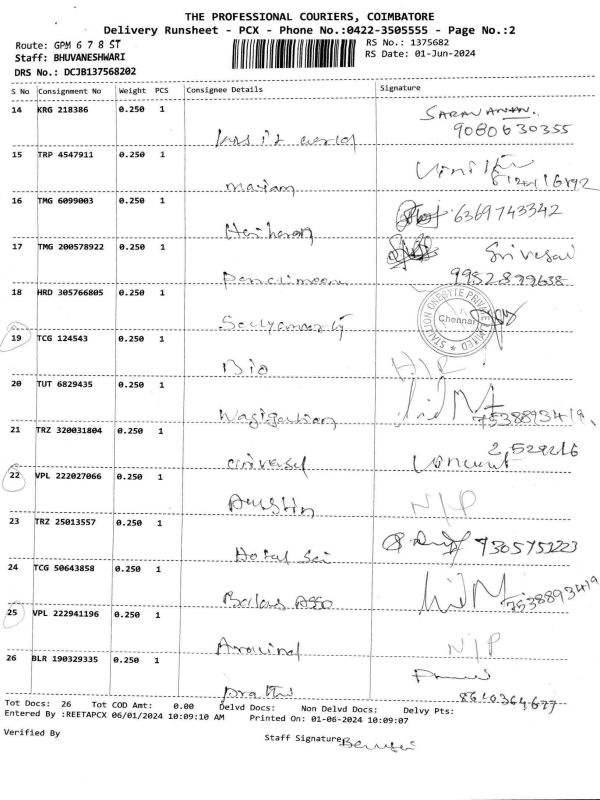 THE PROFESSIONAL COURIERS, COIMBATORE
Delivery Runsheet - PCX - Phone No.:0422-3505555 - Page No.:2
Route: GPM 6 7 8 ST
RS No.: 1375682
Staff: BHUVANESHWARI
RS Date: 01-Jun-2024
DRS No.: DCJB137568202
S No Consignment No Weight PCS Consignee Details Signature
14 KRG 218386 0.250 1
SARAVANAN.
9080630355
15 TRP 4547911 0.250 1
mariam
16 TMG 6099003 0.250 1
6369743342
Hariharan
17 TMG 200578922 0.250 1
Srivesai
9952899638
18 HRD 305766805 0.250 1
STALLION ONEBYTE PRIVATE LIMITED
Chennai
19 TCG 124543 0.250 1
Bio
20 TUT 6829435 0.250 1
7538893419
21 TRZ 320031804 0.250 1
22 VPL 222027066 0.250 1
Austin N/P
23 TRZ 25013557 0.250 1
9305751223
Hotal Sai
24 TCG 50643858 0.250 1
7538893419
25 VPL 222941196 0.250 1
Aravind N/P
26 BLR 190329335 0.250 1
8610364677
Tot Docs: 26 Tot COD Amt: 0.00 Delvd Docs: Non Delvd Docs: Delvy Pts:
Entered By :REETAPCX 06/01/2024 10:09:10 AM Printed On: 01-06-2024 10:09:07
Verified By
Staff Signature